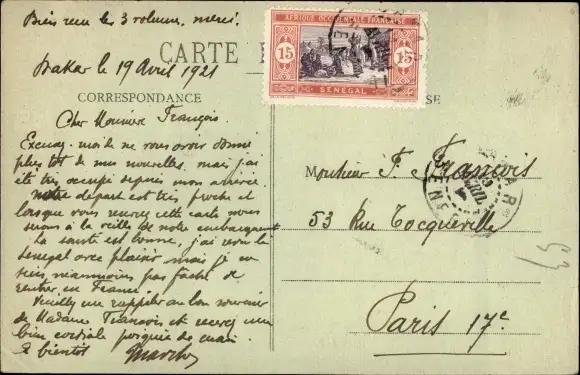 Bien reçu les 3 volumes, merci.
Dakar le 19 Avril 1921
CARTE
AFRIQUE OCCIDENTALE FRANÇAISE
15
15
SENEGAL
CORRESPONDANCE
SSE
Cher Monsieur François.
Excusez-moi de ne vous avoir donné
plus tôt de mes nouvelles. mais j'ai
été très occupé depuis mon arrivée.
Notre départ est très proche et
lorsque vous recevrez cette carte nous
serons à la veille de notre embarquement
La santé est bonne, j'ai revu le
Senegal avec plaisir mais je ne
suis néanmoins pas faché de
rentrer en France.
Veuillez me rappeler au bon souvenir
de Madame Francois et recevez une
bien cordiale poignée de main.
A bientôt
Monsieur F. François
53 Rue Tocqueville
Paris 17e
DAKAR